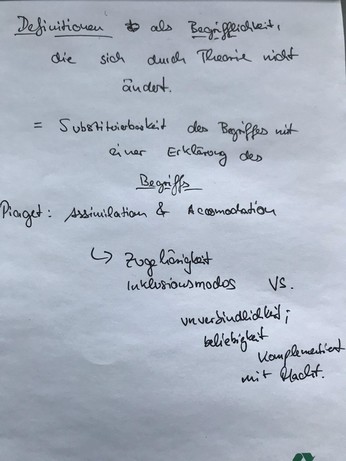 Definitionen als Begrifflichkeit,
die sich durch Theorie nicht
ändert.
= Substituierbarkeit des Begriffes mit
einer Erklärung des
Begriffs
Piaget: Assimilation & Accomodation
↳ Zugehörigkeit
Inklusionsmodos vs.
unverbindlichkeit;
beliebigkeit
Komplementiert
mit Macht.